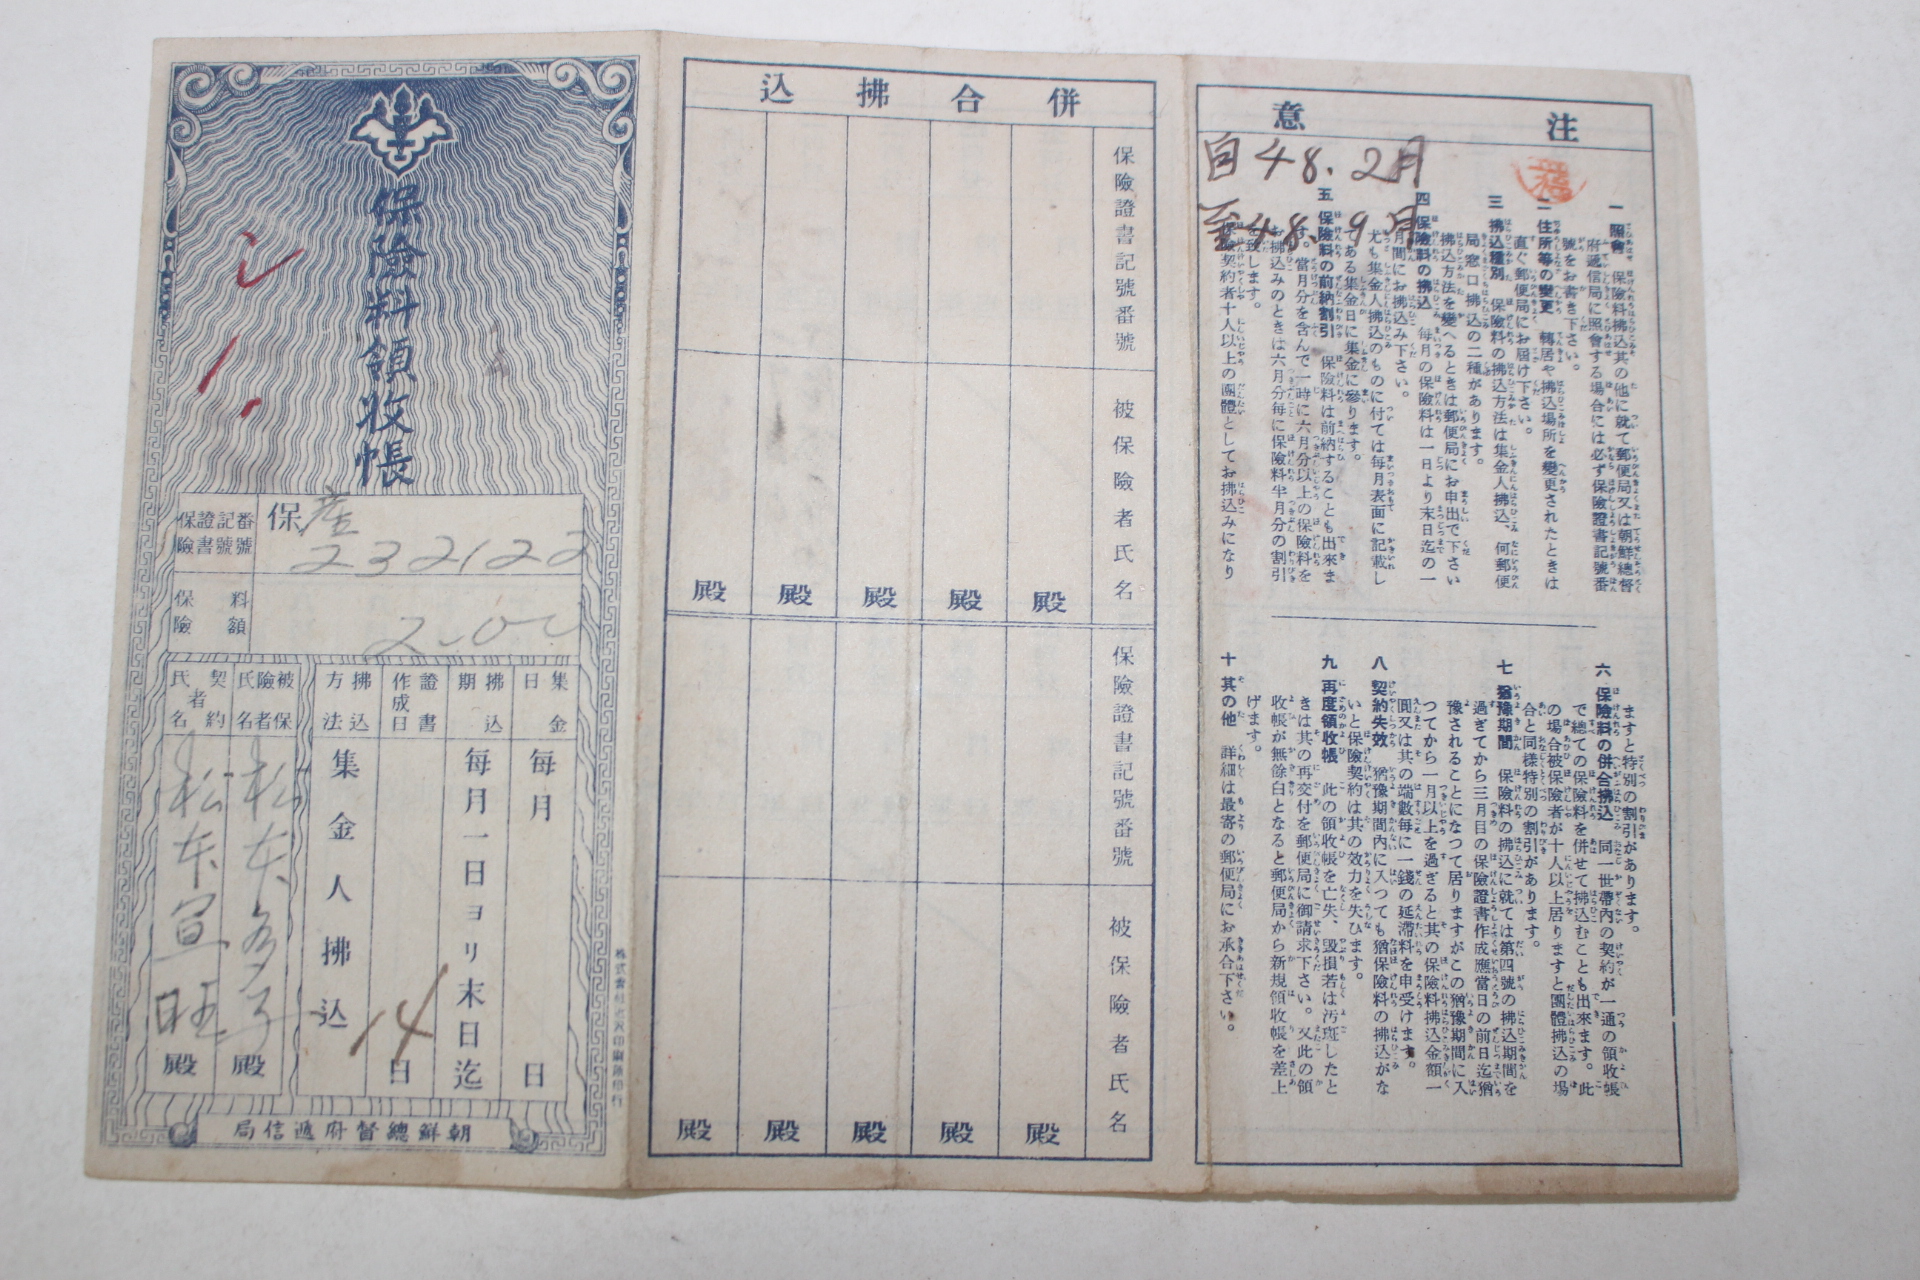 保險料領收帳
シ
ノ.
保險證書記號番號
保產
232122
保險料額
2.00
集金日
每月 日
拂込期
每月一日ヨリ末日迄
證書作成日
14日
拂込方法
集金人拂込
被保險者氏名
松本 子 殿
契約者氏名
松本宣旺殿
朝鮮總督府遞信局
併合拂込
保險證書記號番號
被保險者氏名
殿
殿
殿
殿
殿
保險證書記號番號
被保險者氏名
殿
殿
殿
殿
殿
注意
自48.2月
至48.9月
一 照會 保險料拂込其の他に就て郵便局又は朝鮮總督
府遞信局に照會する場合には必ず保險證書記號番
號をお書き下さい。
二 住所等の變更 轉居や拂込場所を變更されたときは
直ぐ郵便局にお届け下さい。
三 拂込種別 保險料の拂込方法は集金人拂込、何郵便
局窓口拂込の二種があります。
拂込方法を變へるときは郵便局にお申出で下さい
四 保險料の拂込 每月の保險料は一日より末日迄の一
月間にお拂込み下さい。
尤も集金人拂込のものに付ては每月表面に記載し
てある集金日に集金に參ります。
五 保險料の前納割引 保險料は前納することも出來ま
す。當月分を含んで一時に六月分以上の保險料を
お拂込みのときは六月分每に保險料半月分の割引
を致します。
保險契約者十人以上の團體としてお拂込みになり
ますと特別の割引があります。
六 保險料の併合拂込 同一世帶內の契約が一通の領收帳
で總ての保險料を併せて拂込むことも出來ます。此
の場合被保險者が十人以上居りますと團體拂込の場
合と同樣特別の割引があります。
七 猶豫期間 保險料の拂込に就ては第四號の拂込期間を
過ぎてから三月目の保險證書作成應當日の前日迄猶
豫されることになつて居りますがこの猶豫期間に入
つてから一月以上を過ぎると其の保險料拂込金額一
圓又は其の端數每に一錢の延滯料を申受けます。
八 契約失效 猶豫期間內に入つても猶保險料の拂込がな
いと保險契約は其の效力を失ひます。
九 再度領收帳 此の領收帳を亡失、毀損若は汚斑したと
きは其の再交付を郵便局に御請求下さい。又此の領
收帳が無餘白となると郵便局から新規領收帳を差上
げます。
十 其の他 詳細は最寄の郵便局にお承合下さい。